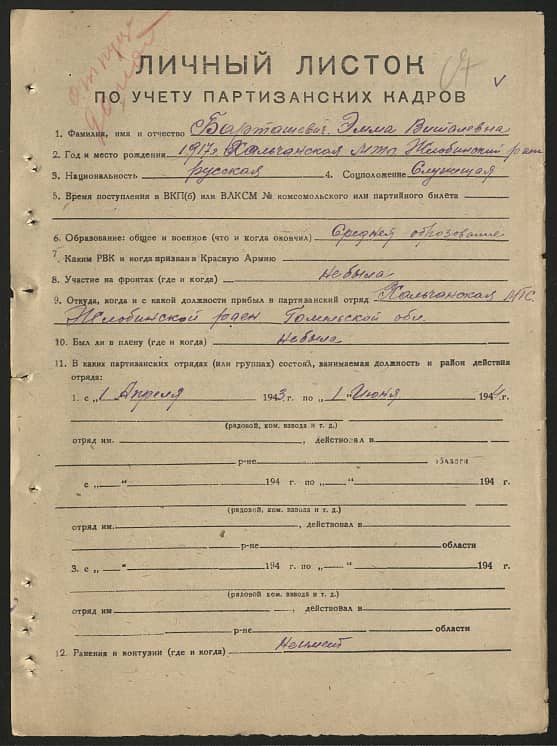 отпуз
домой
ЛИЧНЫЙ ЛИСТОК
ПО УЧЕТУ ПАРТИЗАНСКИХ КАДРОВ
1. Фамилия, имя и отчество Барташевич Эмма Виталевна
2. Год и место рождения 1917г Кальчанская мтс Жлобинский раен
3. Национальность русская 4. Соцположение Служищая
5. Время поступления в ВКП(б) или ВЛКСМ № комсомольского или партийного билета
6. Образование: общее и военное (что и когда окончил) Среднея образование
7. Каким РВК и когда призван в Красную Армию
8. Участие на фронтах (где и когда) небыла
9. Откуда, когда и с какой должности прибыл в партизанский отряд Кальчанская МТС.
Жлобинской раен Гомельской обл.
10. Был ли в плену (где и когда) небыла
11. В каких партизанских отрядах (или группах) состоял, занимаемая должность и район действия
отряда:
1. с „1 Апреля 1943 г. по „1 Июня 1944 г.
(рядовой, ком. взвода и т. д.)
отряд им. , действовал в
р-не области
с „ — “ 194 г. по „ — “ 194 г.
(рядовой, ком. взвода и т. д.)
отряд им. , действовал в
р-не области
3. с „ — “ 194 г. по „ — “ 194 г.
(рядовой, ком. взвода и т. д.)
отряд им , действовал в
р-не области
12. Ранения и контузии (где и когда) Неимеит